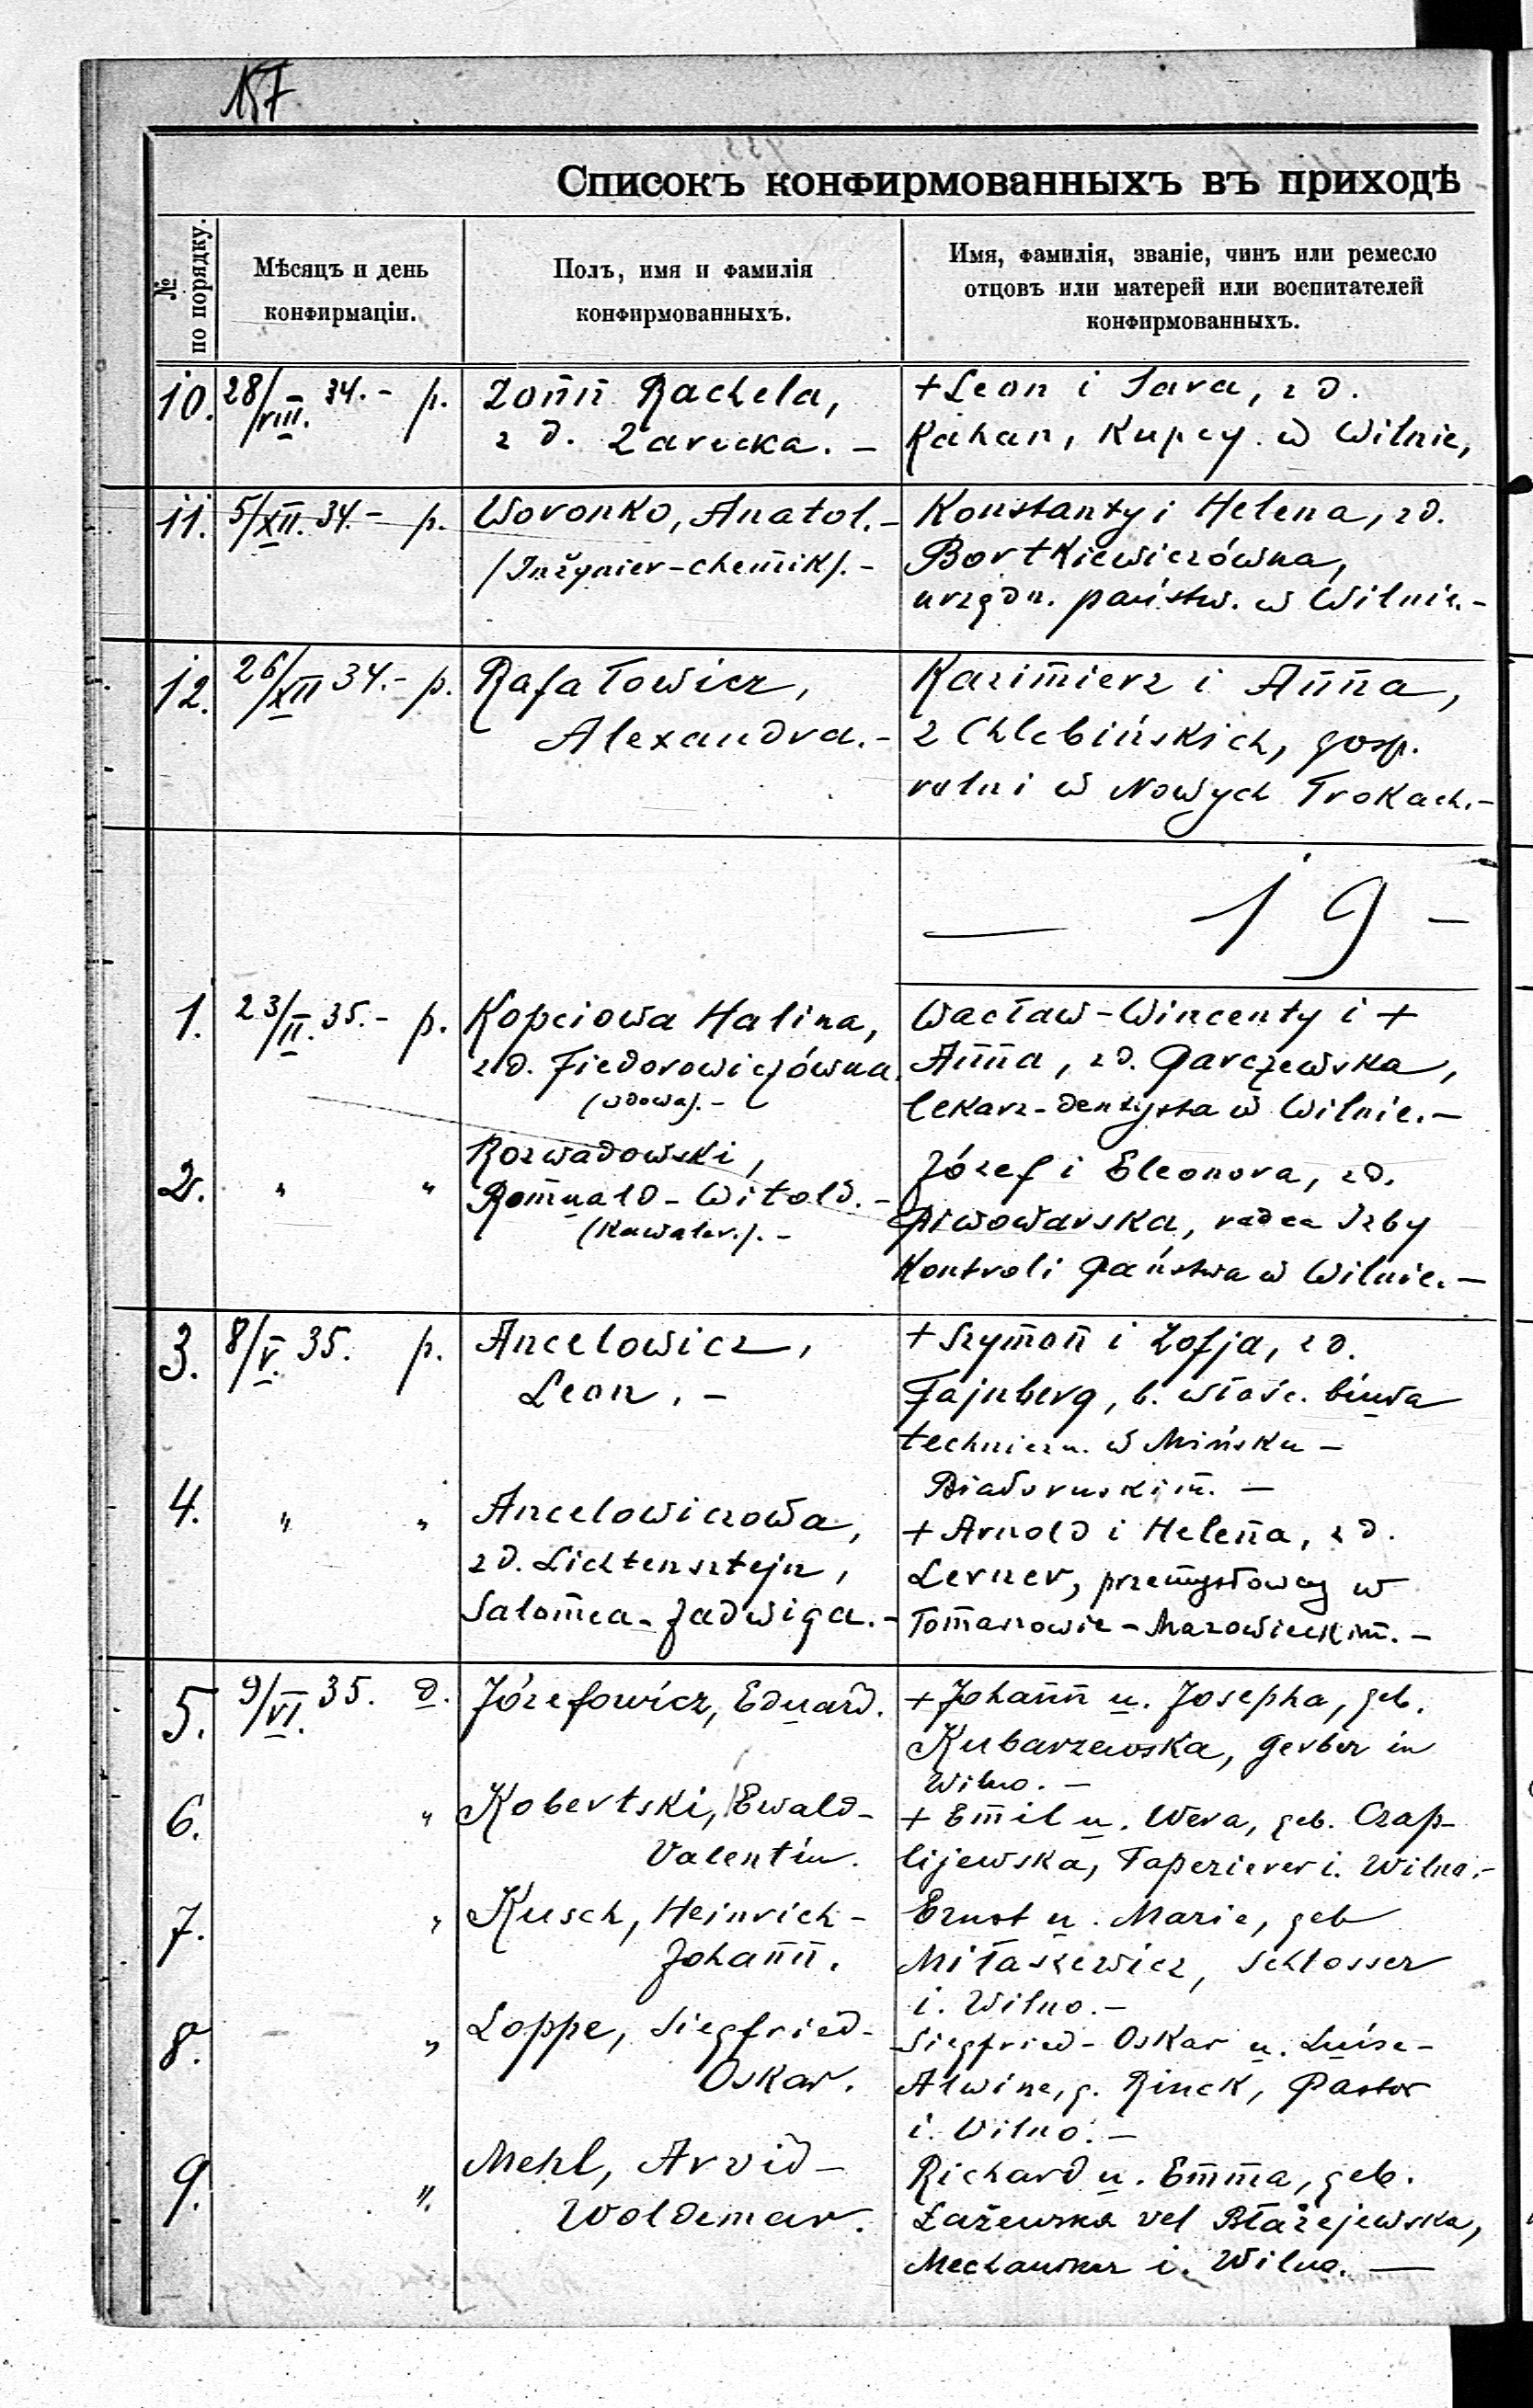 157
Списокъ конфирмованныхъ въ приходѣ
№ по порядку.
Мѣсяцъ и день
конфирмаціи.
Полъ, имя и фамилія
конфирмованныхъ.
Имя, фамилія, званіе, чинъ или ремесло
отцовъ или матерей или воспитателей
конфирмованныхъ.
10. 28/VIII. 34.- p.
Zonn Rachela,
z d. Zarecka. -
+ Leon i Sara, z d.
Kahan, Kupcy w Wilnie,
11. 5/XII. 34.- p.
Woronko, Anatol. -
/Inżynier-chemik/. -
Konstanty i Helena, z d.
Bortkiewiczówna,
urzędn. państw. w Wilnie. -
12. 26/XII 34.- p.
Rafałowicz,
Alexandra. -
Kazimierz i Anna,
z Chlebińskich, gosp.
rolni w Nowych Trokach. -
— 19 -
1. 23/II. 35.- p.
Kopciowa Halina,
z d. Fiedorowiczówna,
(wdowa). -
Wacław-Wincenty i +
Anna, z d. Garczewska,
lekarz-dentysta w Wilnie. -
2. " "
Rozwadowski,
Romuald-Witold. -
(Kawaler.). -
Józef i Eleonora, z d.
Piwowarska, radca Izby
Kontroli Państwa w Wilnie. -
3. 8/V. 35. p.
Ancelowicz,
Leon. -
+ Szymon i Zofja, z d.
Fajnberg, b. właśc. biura
techniczn. w Mińsku -
Białoruskim. -
4. " "
Ancelowiczowa,
z d. Lichtensztejn,
Salomea-Jadwiga. -
+ Arnold i Helena, z d.
Lerner, przemysłowcy w
Tomaszowie-Mazowieckim. -
5. 9/VI. 35. d.
Józefowicz, Eduard.
+ Johann u. Josepha, geb.
Kubarzewska, Gerber in
Wilno. -
6. "
Kobertski, Ewald-
Valentin.
+ Emil u. Wera, geb. Czap-
lijewska, Tapezierer i. Wilno. -
7. "
Kusch, Heinrich-
Johann.
Ernst u. Marie, geb
Miłaszewicz, Schlosser
i. Wilno. -
8. "
Loppe, Siegfried-
Oskar.
Siegfried-Oskar u. Luise-
Alwine, g. Rinck, Pastor
i. Wilno. -
9. ".
Mehl, Arvid-
Woldemar.
Richard u. Emma, geb.
Łażewska vel Błażejewska,
Mechaniker i. Wilno. -